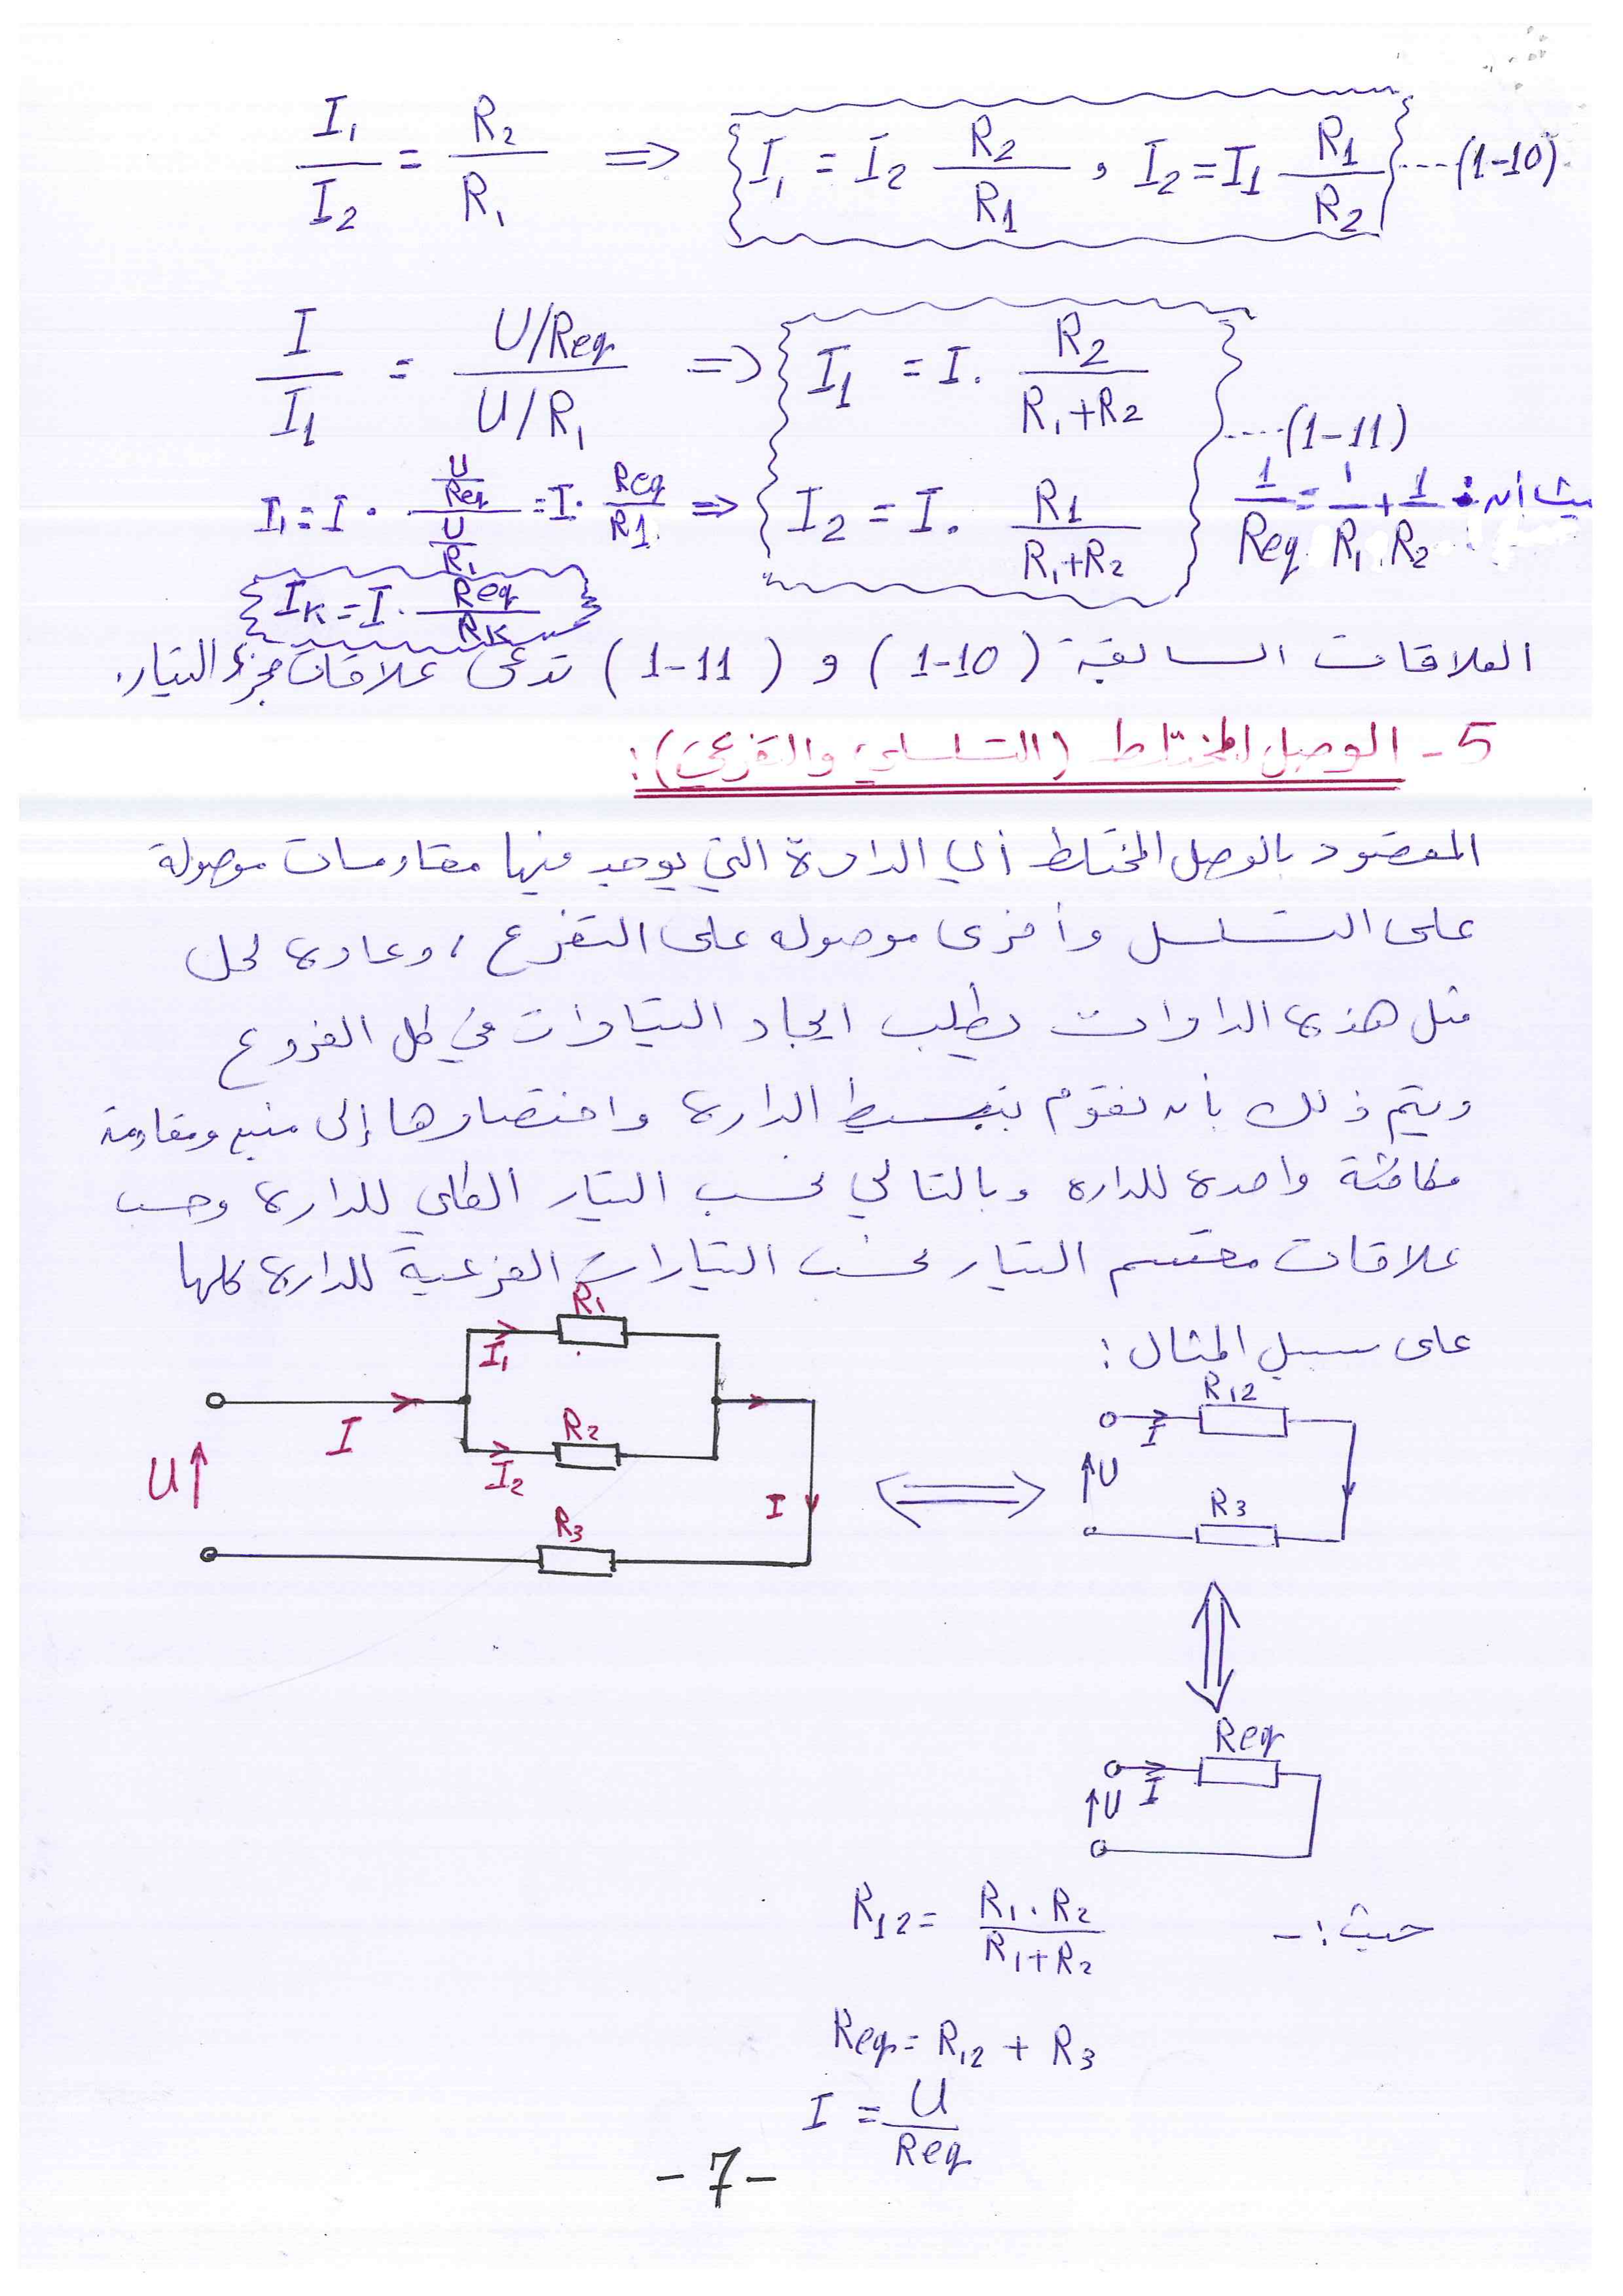 I₁/I₂ = R₂/R₁ ⇒ I₁ = I₂ R₂/R₁ , I₂ = I₁ R₁/R₂ ....(1-10)
I/I₁ = (U/Req)/(U/R₁) ⇒ I₁ = I . R₂/(R₁+R₂)
....(1-11)
I₁ = I . (U/Req)/(U/R₁) = I . Req/R1 ⇒ I₂ = I . R₁/(R₁+R₂)
حيث أن : 1/Req = 1/R₁ + 1/R₂
Iк = I . Req/Rк
العلاقات السابقة (1-10) و (1-11) تدعى علاقات مجزء التيار.
5- الوصل المختلط (التسلسلي والتفرعي):
المقصود بالوصل المختلط أي الدارة التي يوجد فيها مقاومات موصولة
على التسلسل وأخرى موصوله على التفرع ، وعادة لحل
مثل هذه الدارات يطلب ايجاد التيارات في كل الفروع
ويتم ذلك بأن نقوم بتبسيط الدارة واختصارها إلى منبع ومقاومة
مكافئة واحدة للداره وبالتالي نحسب التيار الكلي للدارة وحسب
علاقات مقسم التيار نحسب التيارات الفرعية للدارة كلها
على سبيل المثال :
R₁
I₁
I
R₂
I₂
U
I
R₃
R₁₂
I
U
R₃
Req
I
U
حيث :- R₁₂ = R₁ . R₂/(R₁+R₂)
Req = R₁₂ + R₃
I = U/Req
-7-